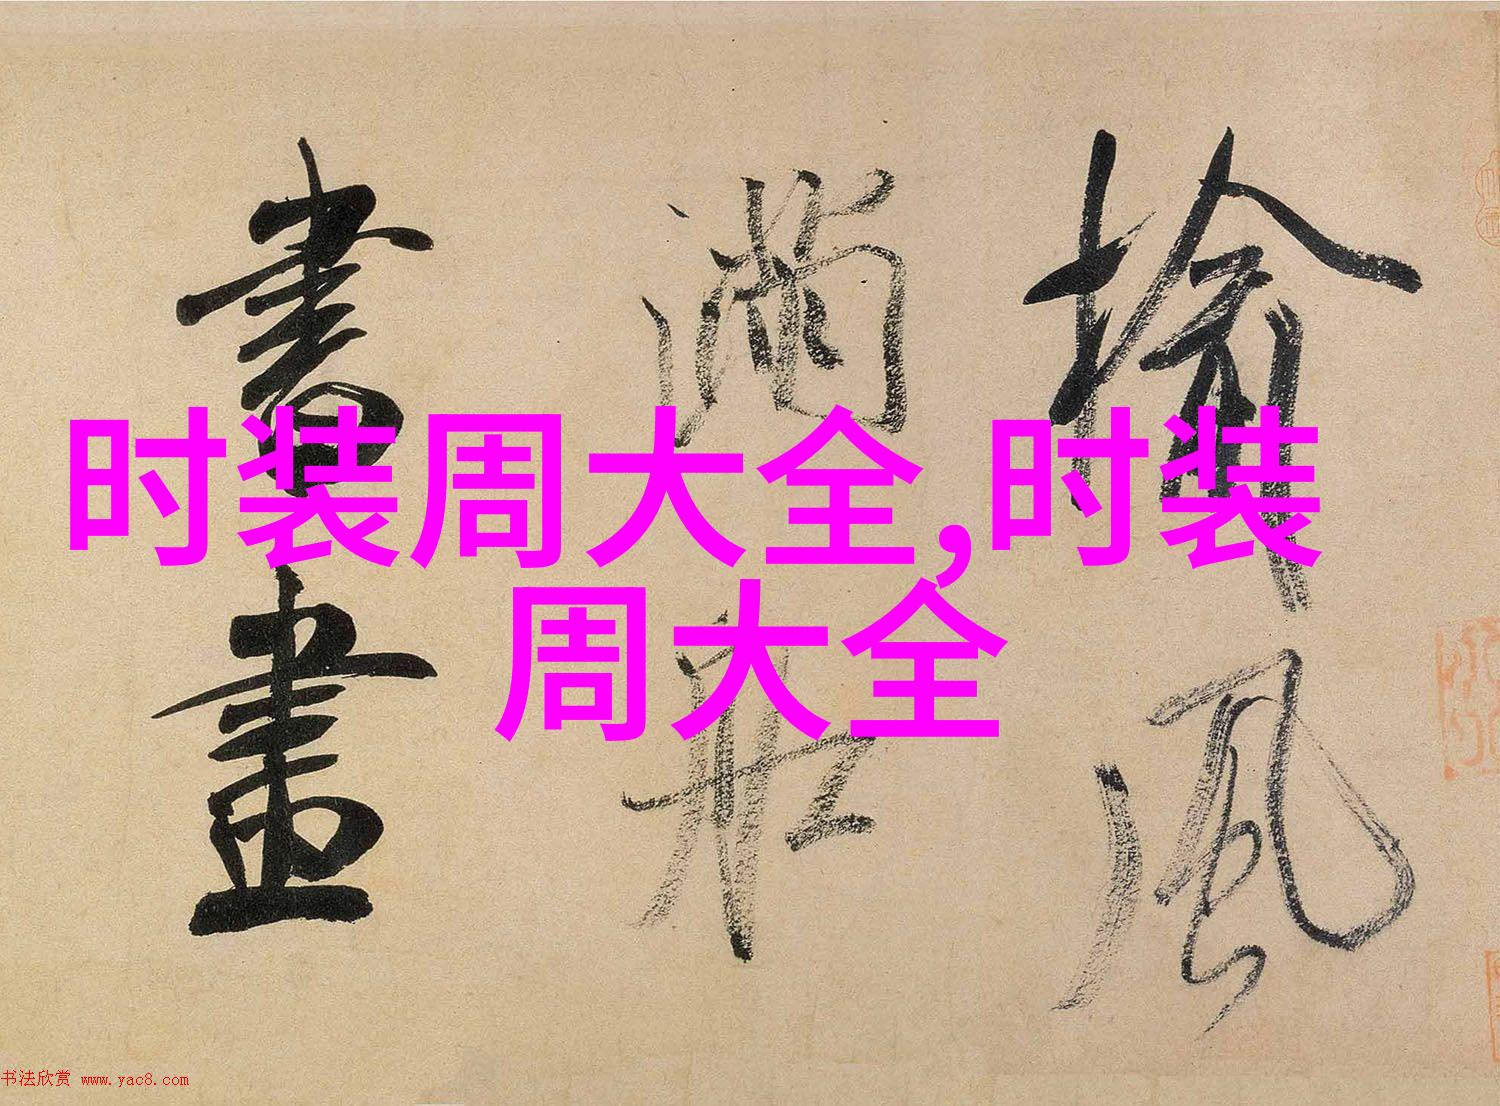 时装周大全,时装
周大全
榆風
滿舡
書畫
书法欣赏 www.yac8.com